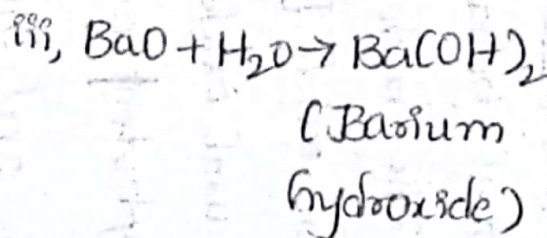 iii, BaO + H₂O → Ba(OH)₂
(Barium
hydroxide)